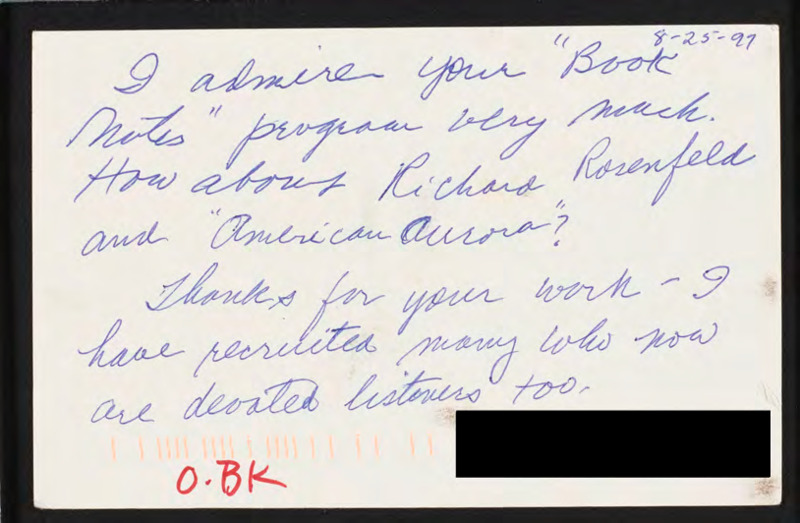 8-25-97
I admire your "Book
Notes" program very much.
How about Richard Rosenfeld
and "American Aurora"?
Thanks for your work - I
have recruited many who now
are devoted listeners too.
O.BK